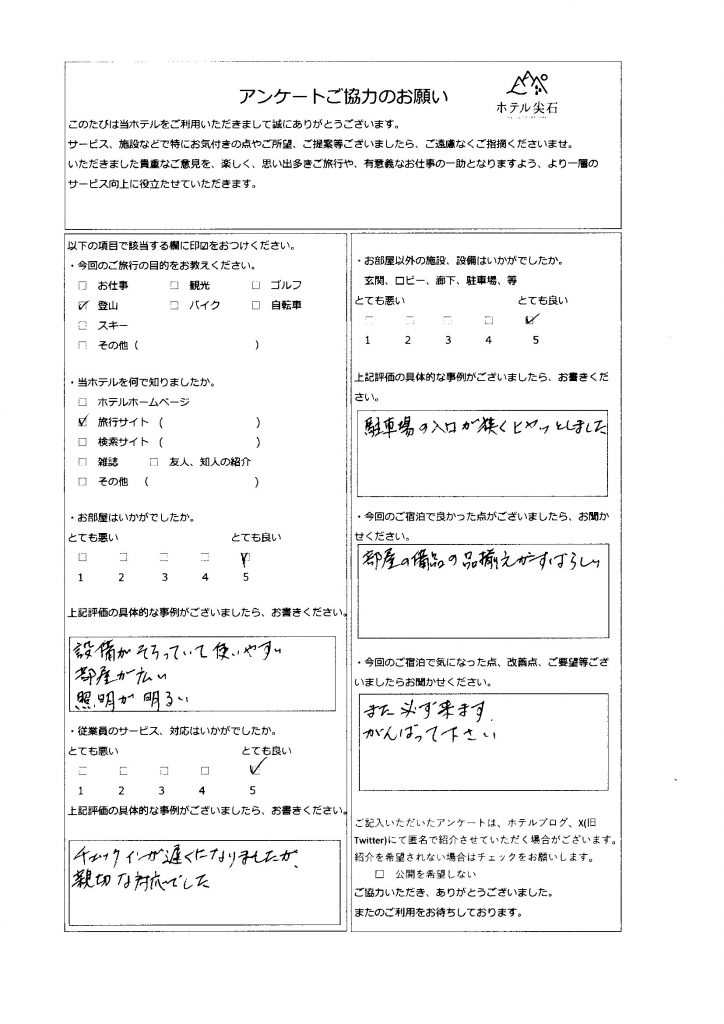 アンケートご協力のお願い
ホテル尖石
このたびは当ホテルをご利用いただきまして誠にありがとうございます。
サービス、施設などで特にお気付きの点やご所望、ご提案等ございましたら、ご遠慮なくご指摘くださいませ。
いただきました貴重なご意見を、楽しく、思い出多きご旅行や、有意義なお仕事の一助となりますよう、より一層の
サービス向上に役立たせていただきます。
以下の項目で該当する欄に印☑をおつけください。
・今回のご旅行の目的をお教えください。
☐ お仕事 ☐ 観光 ☐ ゴルフ
☑ 登山 ☐ バイク ☐ 自転車
☐ スキー
☐ その他 ( )
・当ホテルを何で知りましたか。
☐ ホテルホームページ
☑ 旅行サイト ( )
☐ 検索サイト ( )
☐ 雑誌 ☐ 友人、知人の紹介
☐ その他 ( )
・お部屋はいかがでしたか。
とても悪い とても良い
☐ ☐ ☐ ☐ ☑
1 2 3 4 5
上記評価の具体的な事例がございましたら、お書きください。
設備がそろっていて使いやすい
部屋が広い
照明が明るい
・従業員のサービス、対応はいかがでしたか。
とても悪い とても良い
☐ ☐ ☐ ☐ ☑
1 2 3 4 5
上記評価の具体的な事例がございましたら、お書きください。
チェックインが遅くになりましたが、
親切な対応でした
・お部屋以外の施設、設備はいかがでしたか。
玄関、ロビー、廊下、駐車場、等
とても悪い とても良い
☐ ☐ ☐ ☐ ☑
1 2 3 4 5
上記評価の具体的な事例がございましたら、お書きくだ
さい。
駐車場の入口が狭くヒヤッとしました
・今回のご宿泊で良かった点がございましたら、お聞か
せください。
部屋の備品の品揃えがすばらしい
・今回のご宿泊で気になった点、改善点、ご要望等ござ
いましたらお聞かせください。
また必ず来ます。
がんばって下さい
ご記入いただいたアンケートは、ホテルブログ、X(旧
Twitter)にて匿名で紹介させていただく場合がございます。
紹介を希望されない場合はチェックをお願いします。
☐ 公開を希望しない
ご協力いただき、ありがとうございました。
またのご利用をお待ちしております。